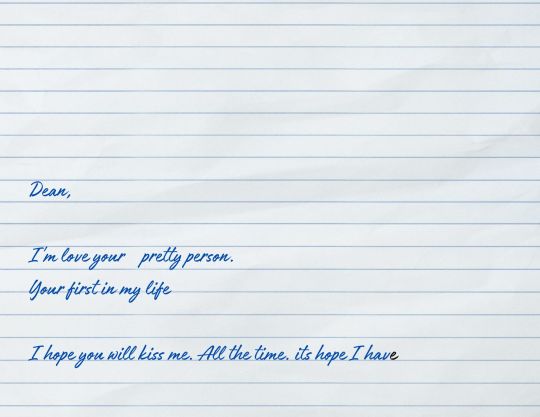 Dean,
I'm love your pretty person.
Your first in my life
I hope you will kiss me. All the time. its hope I have